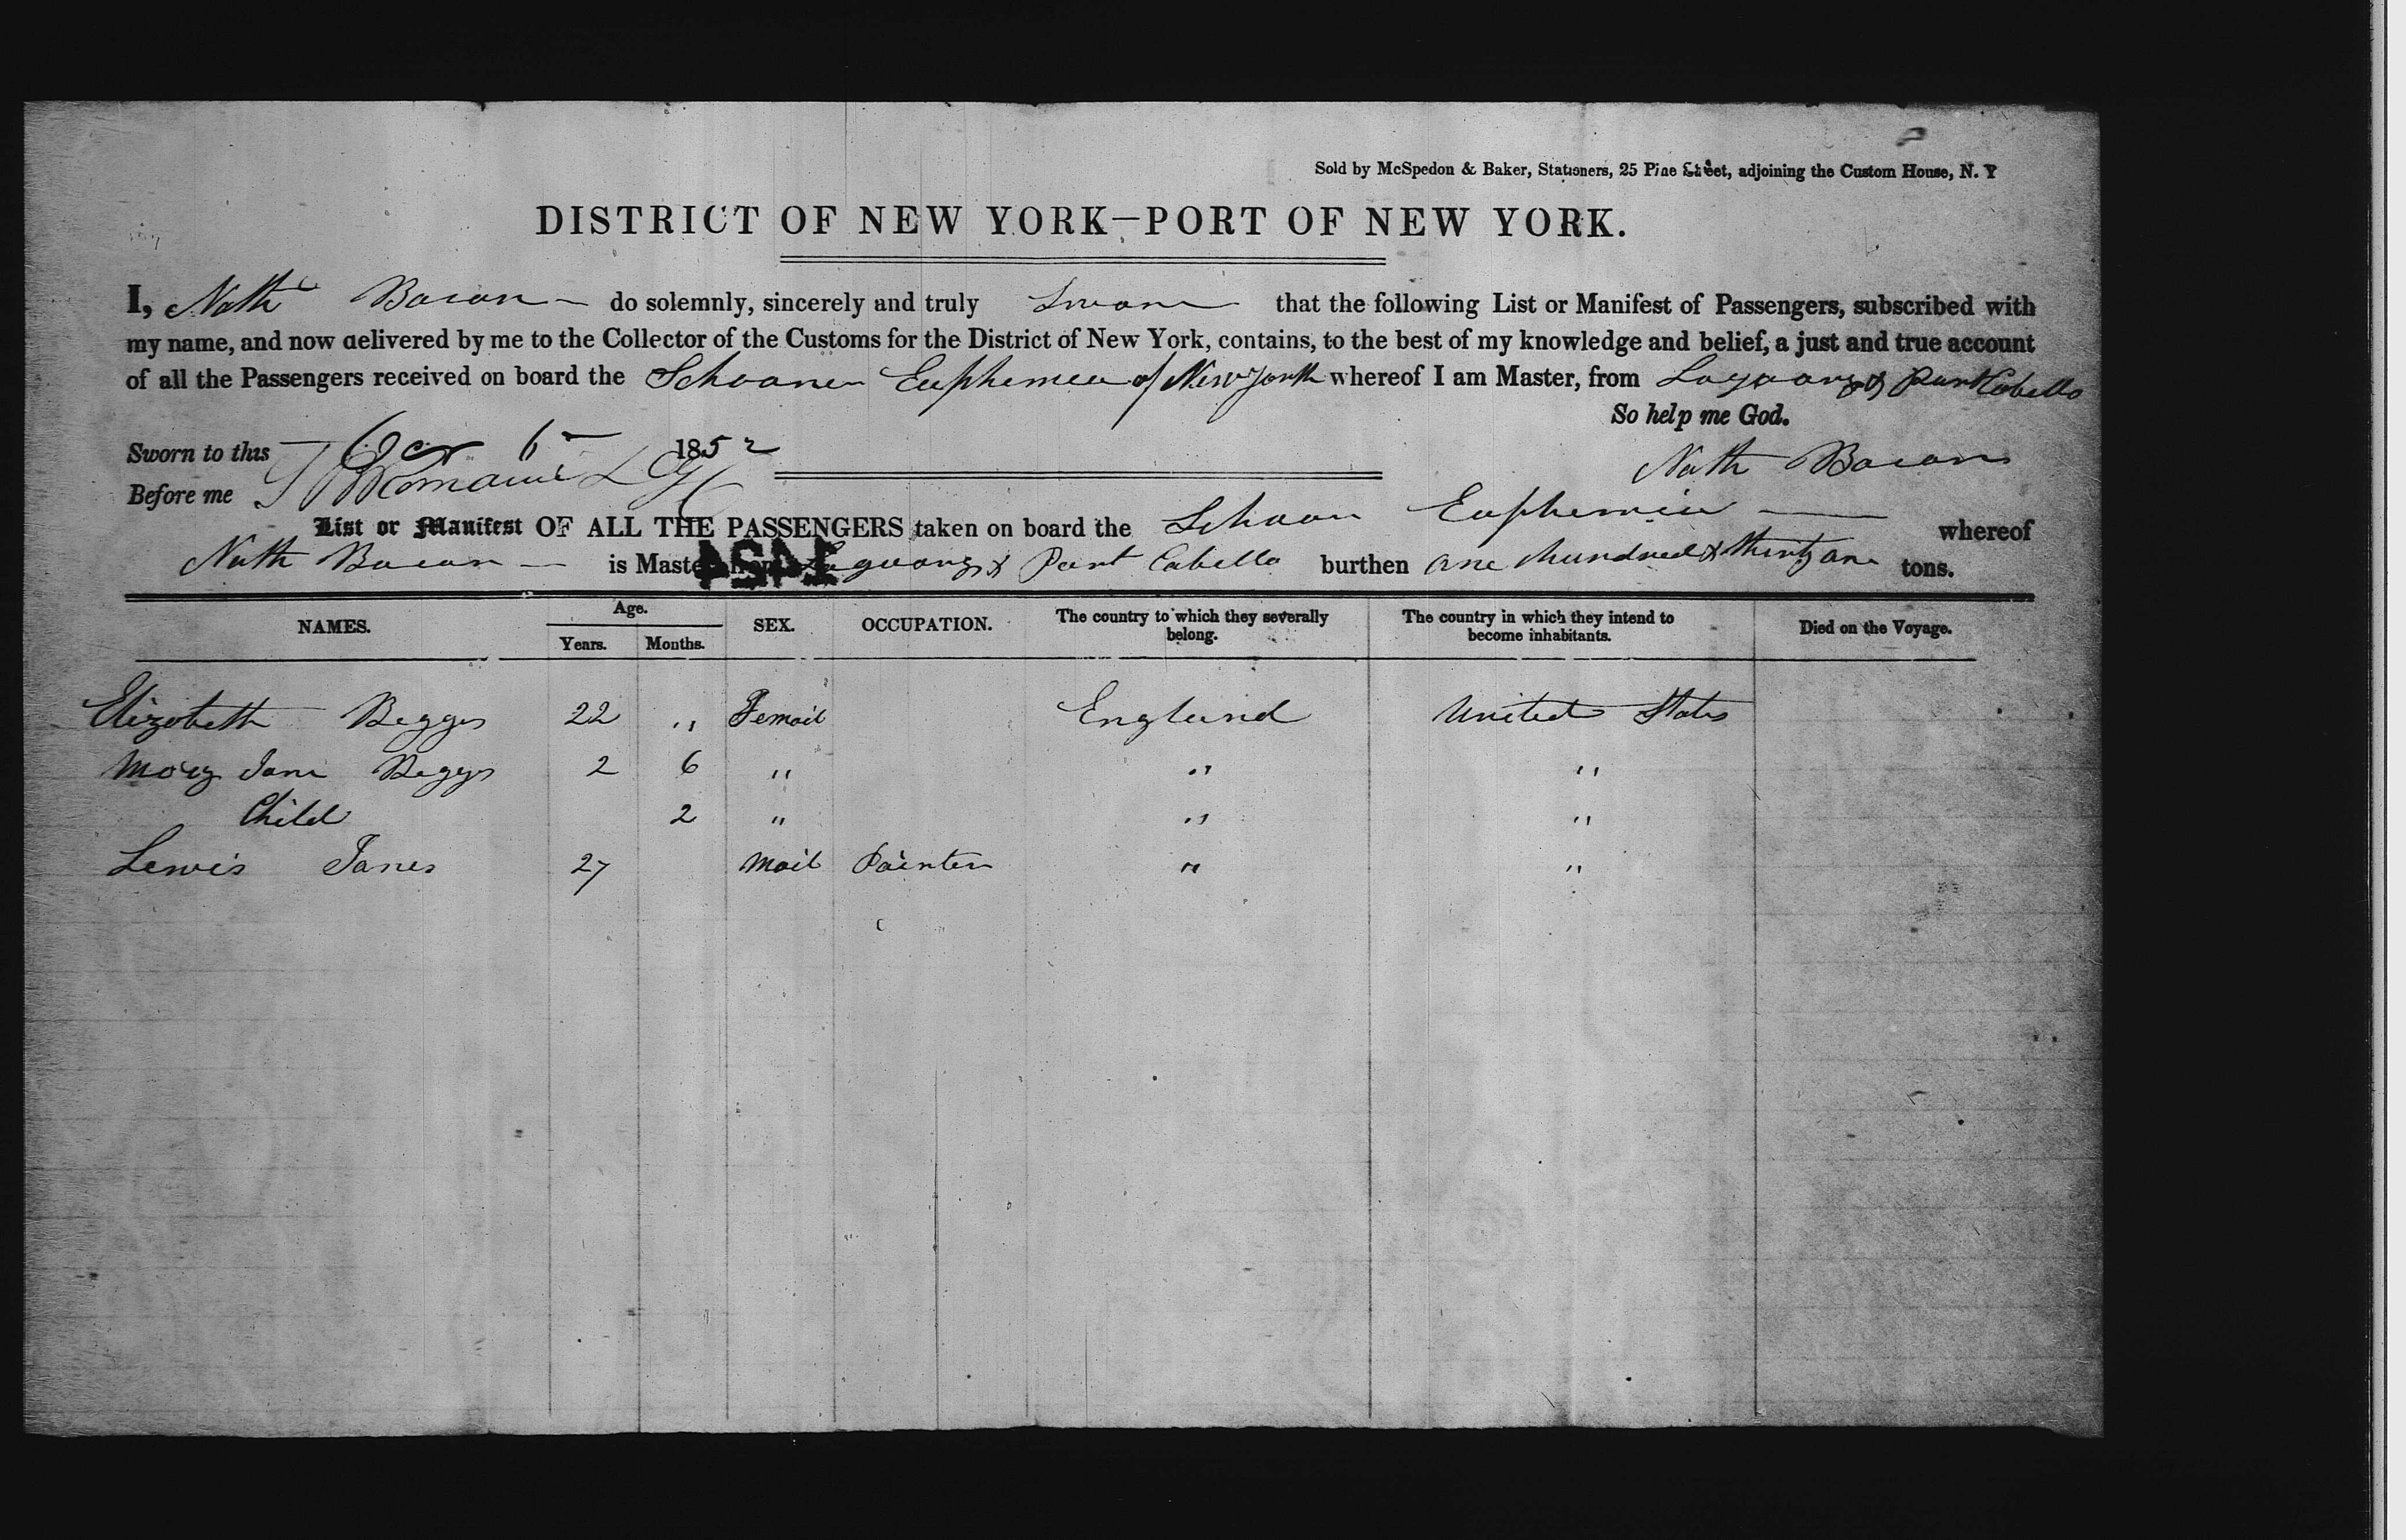 Sold by McSpedon & Baker, Stationers, 25 Pine Street, adjoining the Custom House, N. Y
DISTRICT OF NEW YORK—PORT OF NEW YORK.
I, Nath Bacon do solemnly, sincerely and truly Swear that the following List or Manifest of Passengers, subscribed with
my name, and now delivered by me to the Collector of the Customs for the District of New York, contains, to the best of my knowledge and belief, a just and true account
of all the Passengers received on board the Schooner Euphemia of New York whereof I am Master, from & Port Cabello
So help me God.
Sworn to this 6 1852
Nath Bacon
Before me
List or Manifest OF ALL THE PASSENGERS taken on board the Schoon Euphemia whereof
Nath Bacon is Master from & Port Cabello burthen one hundred & thirty one tons.
NAMES. Age. SEX. OCCUPATION. The country to which they severally belong. The country in which they intend to become inhabitants. Died on the Voyage.
Years. Months.
Elizabeth Beggs 22 " Femail England United States
Mary Jane Beggs 2 6 " " "
Child 2 " " "
Lewis Janes 27 Mail Painter " "